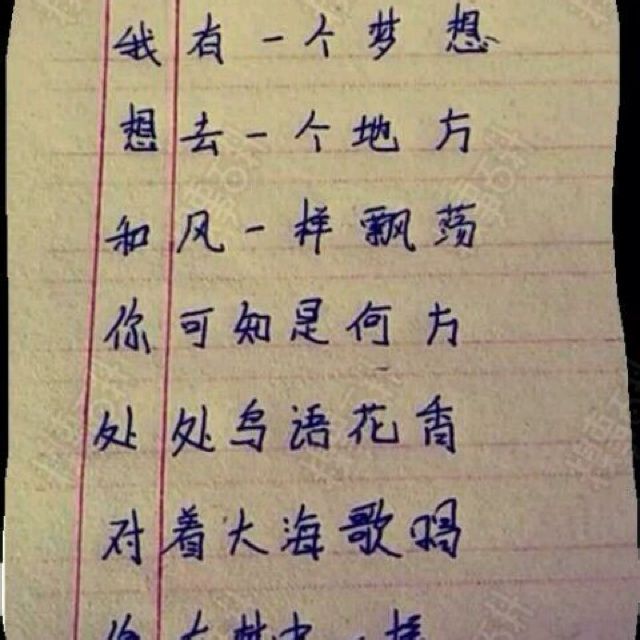 我有一个梦想
想去一个地方
和风一样飘荡
你可知是何方
处处鸟语花香
对着大海歌唱